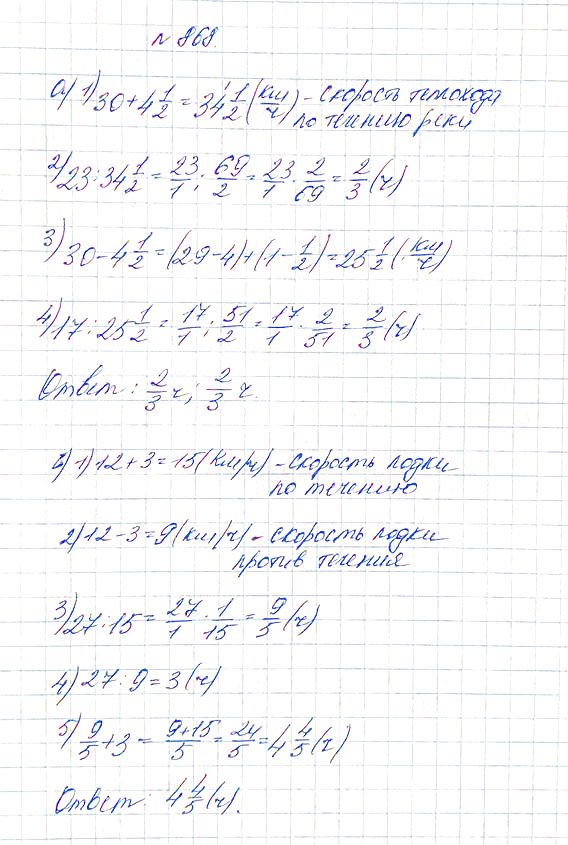 № 868.
а) 1) 30 + 4 1/2 = 34 1/2 (км/ч) – скорость теплохода
по течению реки
2) 23 : 34 1/2 = 23/1 : 69/2 = 23/1 · 2/69 = 2/3 (ч)
3) 30 – 4 1/2 = (29 – 4) + (1 – 1/2) = 25 1/2 (км/ч)
4) 17 : 25 1/2 = 17/1 : 51/2 = 17/1 · 2/51 = 2/3 (ч)
Ответ: 2/3 ч; 2/3 ч.
б) 1) 12 + 3 = 15 (км/ч) – скорость лодки
по течению
2) 12 – 3 = 9 (км/ч) – скорость лодки
против течения
3) 27 : 15 = 27/1 · 1/15 = 9/5 (ч)
4) 27 : 9 = 3 (ч)
5) 9/5 + 3 = 9+15/5 = 24/5 = 4 4/5 (ч)
Ответ: 4 4/5 (ч).